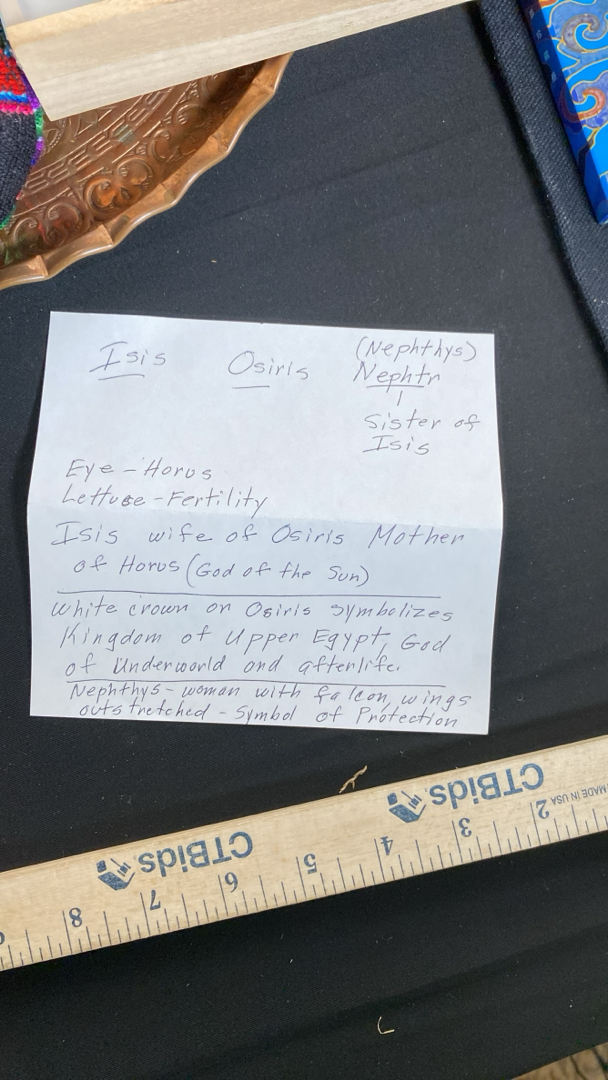 Isis Osiris (Nephthys)
Nephtr
Sister of
Isis
Eye - Horus
Lettuse - Fertility
Isis wife of Osiris Mother
of Horus (God of the Sun)
White crown on Osiris symbolizes
Kingdom of Upper Egypt, God
of Underworld and afterlife.
Nephthys - woman with falcon, wings
outstretched - Symbol of Protection
CTBids
MADE IN USA
CTBids
2 3 4 5 6 7 8